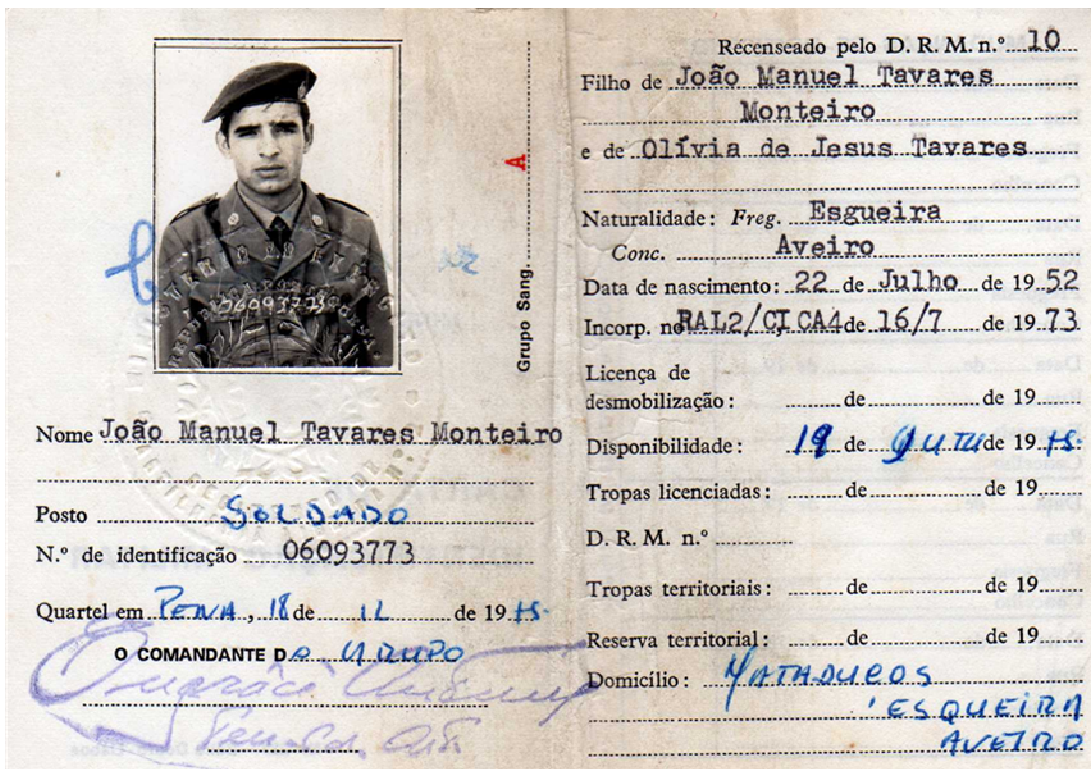 06093773
Grupo Sang. A
Nome João Manuel Tavares Monteiro
Posto SOLDADO
N.º de identificação 06093773
Quartel em PENA, 18 de 12 de 1975.
O COMANDANTE DO GRUPO
Recenseado pelo D. R. M. n.º 10
Filho de João Manuel Tavares
Monteiro
e de Olívia de Jesus Tavares
Naturalidade: Freg. Esgueira
Conc. Aveiro
Data de nascimento: 22 de Julho de 1952
Incorp. no RAL2/CICA4 de 16/7 de 1973
Licença de
desmobilização: de de 19
Disponibilidade: 19 de de 1975.
Tropas licenciadas: de de 19
D. R. M. n.º
Tropas territoriais: de de 19
Reserva territorial: de de 19
Domicílio: MATADUÇOS
ESGUEIRA
AVEIRO